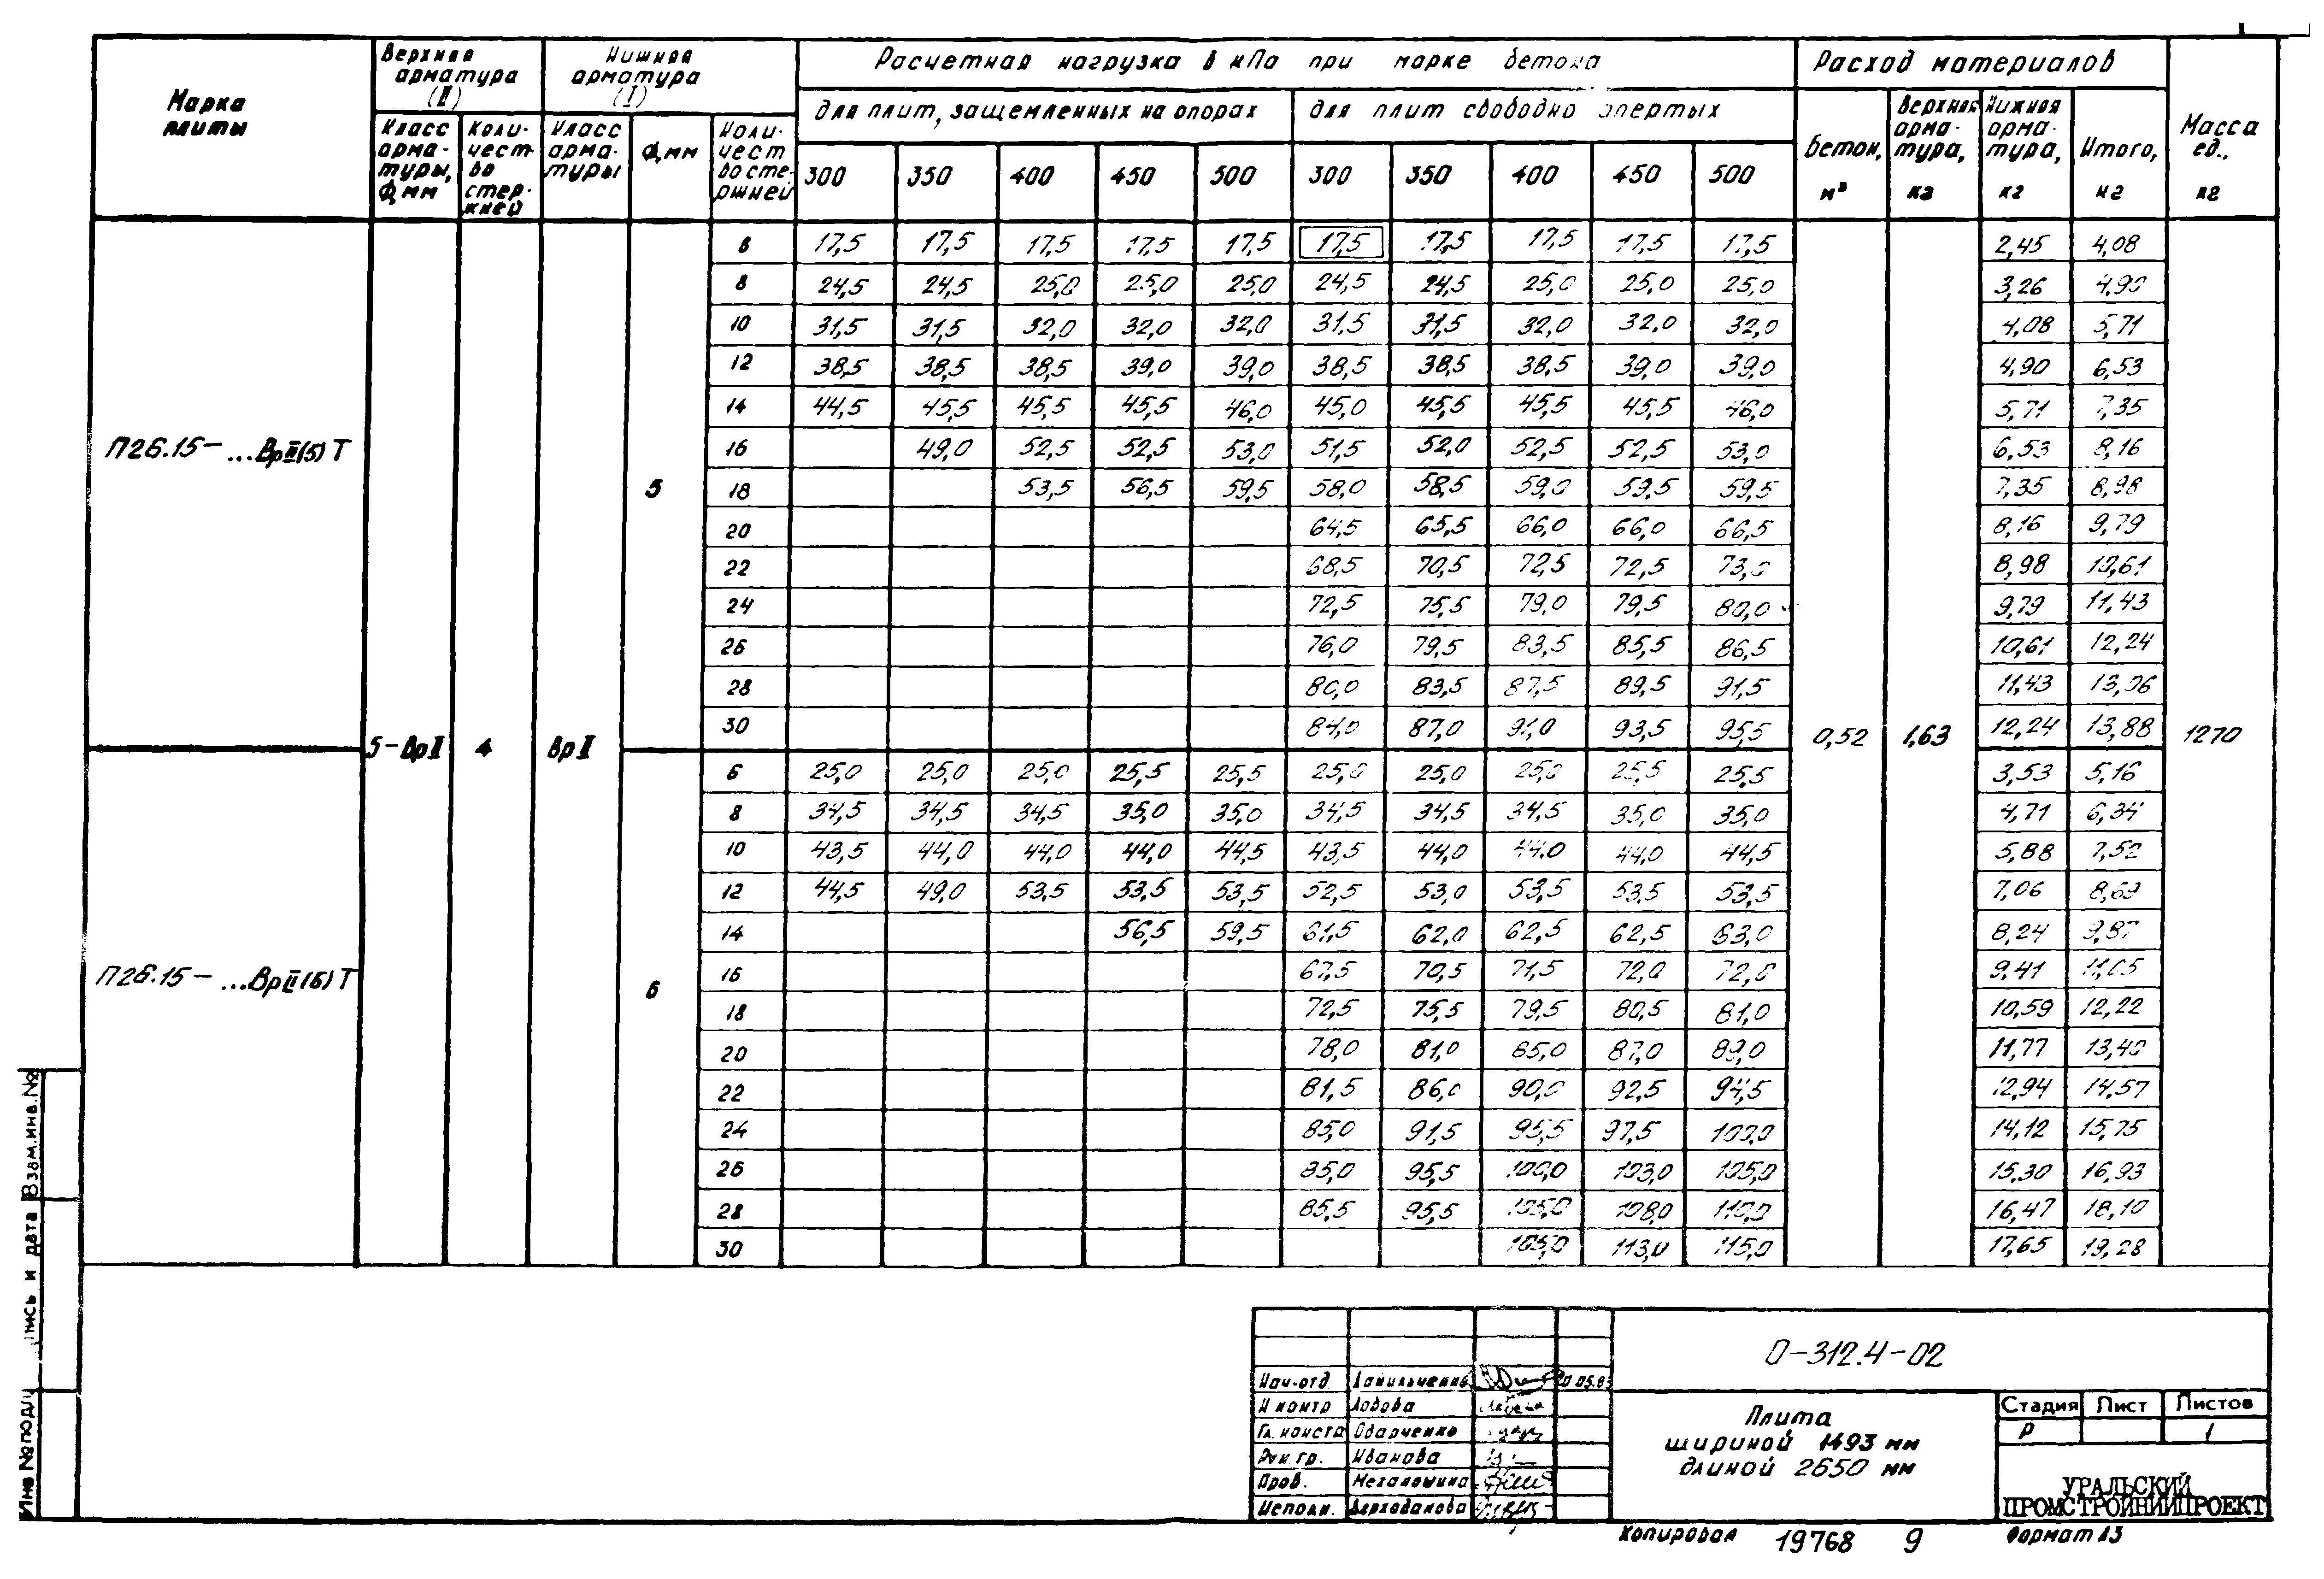 Марка плиты
Верхняя арматура (II)
Нижняя арматура (I)
Расчетная нагрузка в кПа при марке бетона
Расход материалов
Масса ед., кг
для плит, защемленных на опорах
для плит свободно опертых
Класс арматуры, Ф, мм
Количество стержней
Класс арматуры
Ф, мм
Количество стержней
300 350 400 450 500 300 350 400 450 500
Бетон, м³
Верхняя арматура, кг
Нижняя арматура, кг
Итого, кг
П26.15-...ВрII(5)Т
5-ВрII 4 ВрII 5 0,52 1,63 1270
6 17,5 17,5 17,5 17,5 17,5 17,5 17,5 17,5 17,5 17,5 2,45 4,08
8 24,5 24,5 25,0 25,0 25,0 24,5 24,5 25,0 25,0 25,0 3,26 4,90
10 31,5 31,5 32,0 32,0 32,0 31,5 31,5 32,0 32,0 32,0 4,08 5,71
12 38,5 38,5 38,5 39,0 39,0 38,5 38,5 38,5 39,0 39,0 4,90 6,53
14 44,5 45,5 45,5 45,5 46,0 45,0 45,5 45,5 45,5 46,0 5,71 7,35
16 49,0 52,5 52,5 53,0 51,5 52,0 52,5 52,5 53,0 6,53 8,16
18 53,5 56,5 59,5 58,0 58,5 59,0 59,5 59,5 7,35 8,98
20 64,5 65,5 66,0 66,0 66,5 8,16 9,79
22 68,5 70,5 72,5 72,5 73,0 8,98 10,61
24 72,5 75,5 79,0 79,5 80,0 9,79 11,43
26 76,0 79,5 83,5 85,5 86,5 10,61 12,24
28 80,0 83,5 87,5 89,5 91,5 11,43 13,06
30 84,0 87,0 91,0 93,5 95,5 12,24 13,88
П26.15-...ВрII(6)Т
6
6 25,0 25,0 25,0 25,5 25,5 25,0 25,0 25,0 25,5 25,5 3,53 5,16
8 34,5 34,5 34,5 35,0 35,0 34,5 34,5 34,5 35,0 35,0 4,71 6,34
10 43,5 44,0 44,0 44,0 44,5 43,5 44,0 44,0 44,0 44,5 5,88 7,52
12 44,5 49,0 53,5 53,5 53,5 52,5 53,0 53,5 53,5 53,5 7,06 8,69
14 56,5 59,5 61,5 62,0 62,5 62,5 63,0 8,24 9,87
16 67,5 70,5 71,5 72,0 72,0 9,41 11,05
18 72,5 75,5 79,5 80,5 81,0 10,59 12,22
20 78,0 81,0 85,0 87,0 89,0 11,77 13,40
22 81,5 86,0 90,0 92,5 94,5 12,94 14,57
24 85,0 91,5 95,5 97,5 100,0 14,12 15,75
26 85,0 95,5 100,0 103,0 105,0 15,30 16,93
28 85,5 95,5 105,0 108,0 110,0 16,47 18,10
30 105,0 113,0 115,0 17,65 19,28
Взам.инв.№
дата
и
Инв №подл
0-312.4-02
Нач.отд Данильченко 05.83
Н контр Лобова
Гл. констр Одарченко
Рук. гр. Иванова
Пров.
Исполн.
Плита
шириной 1493 мм
длиной 2650 мм
Стадия Лист Листов
Р 1
УРАЛЬСКИЙ
ПРОМСТРОЙНИИПРОЕКТ
Копировал 19768 9 Формат А3